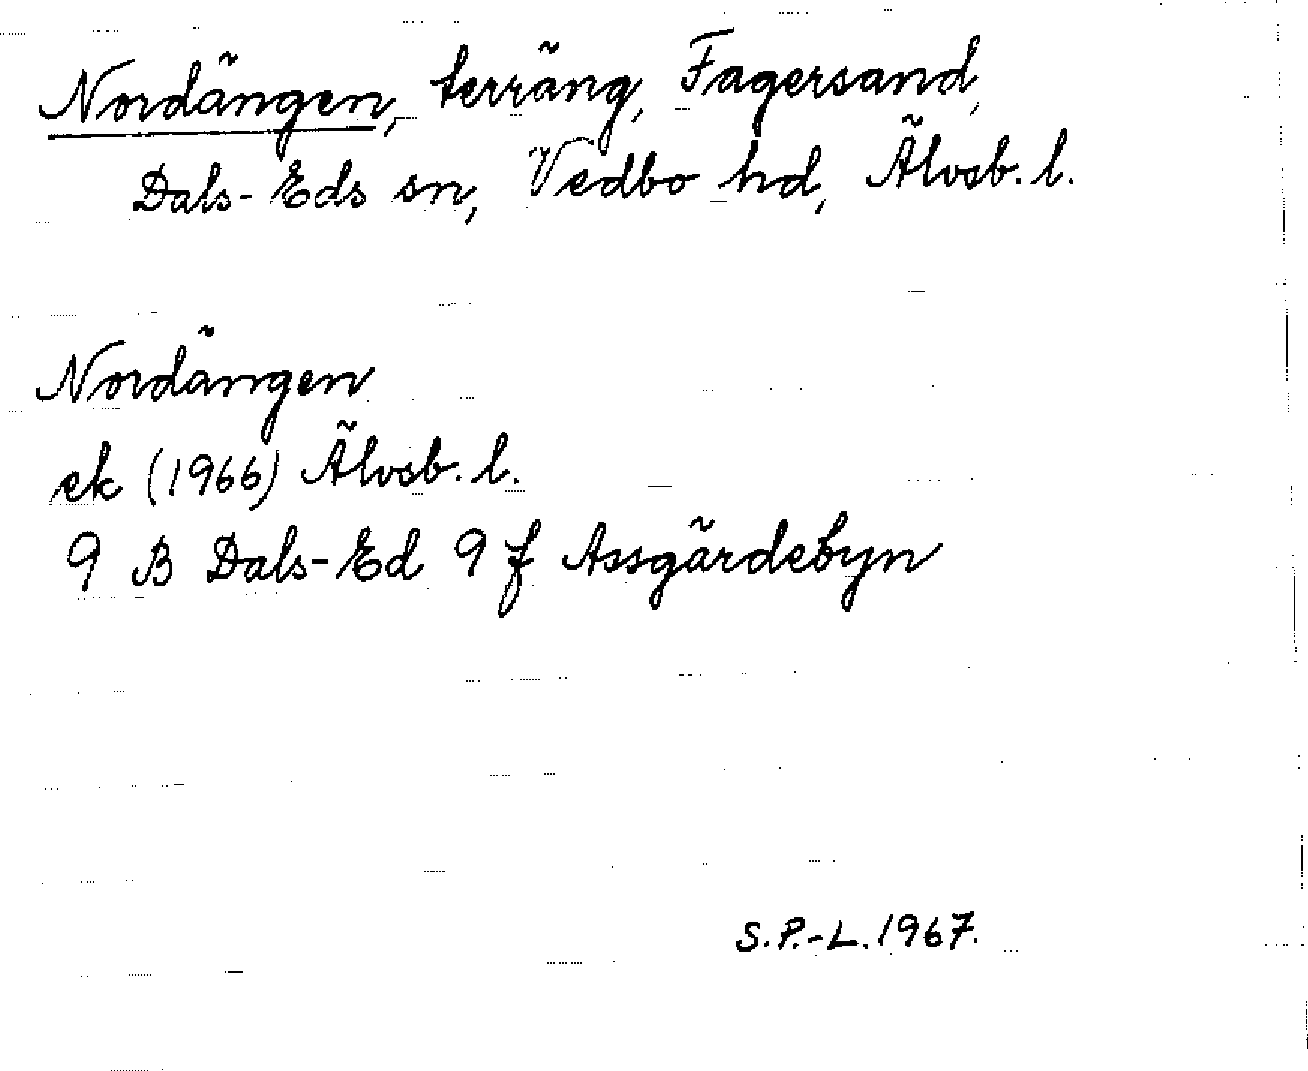 Nordängen, terräng, Fagersand,
Dals-Eds sn, Vedbo hd, Älvsb. l.
Nordängen
ek (1966) Älvsb. l.
9 B Dals-Ed 9 f Assgärdebyn
S.P.-L. 1967.